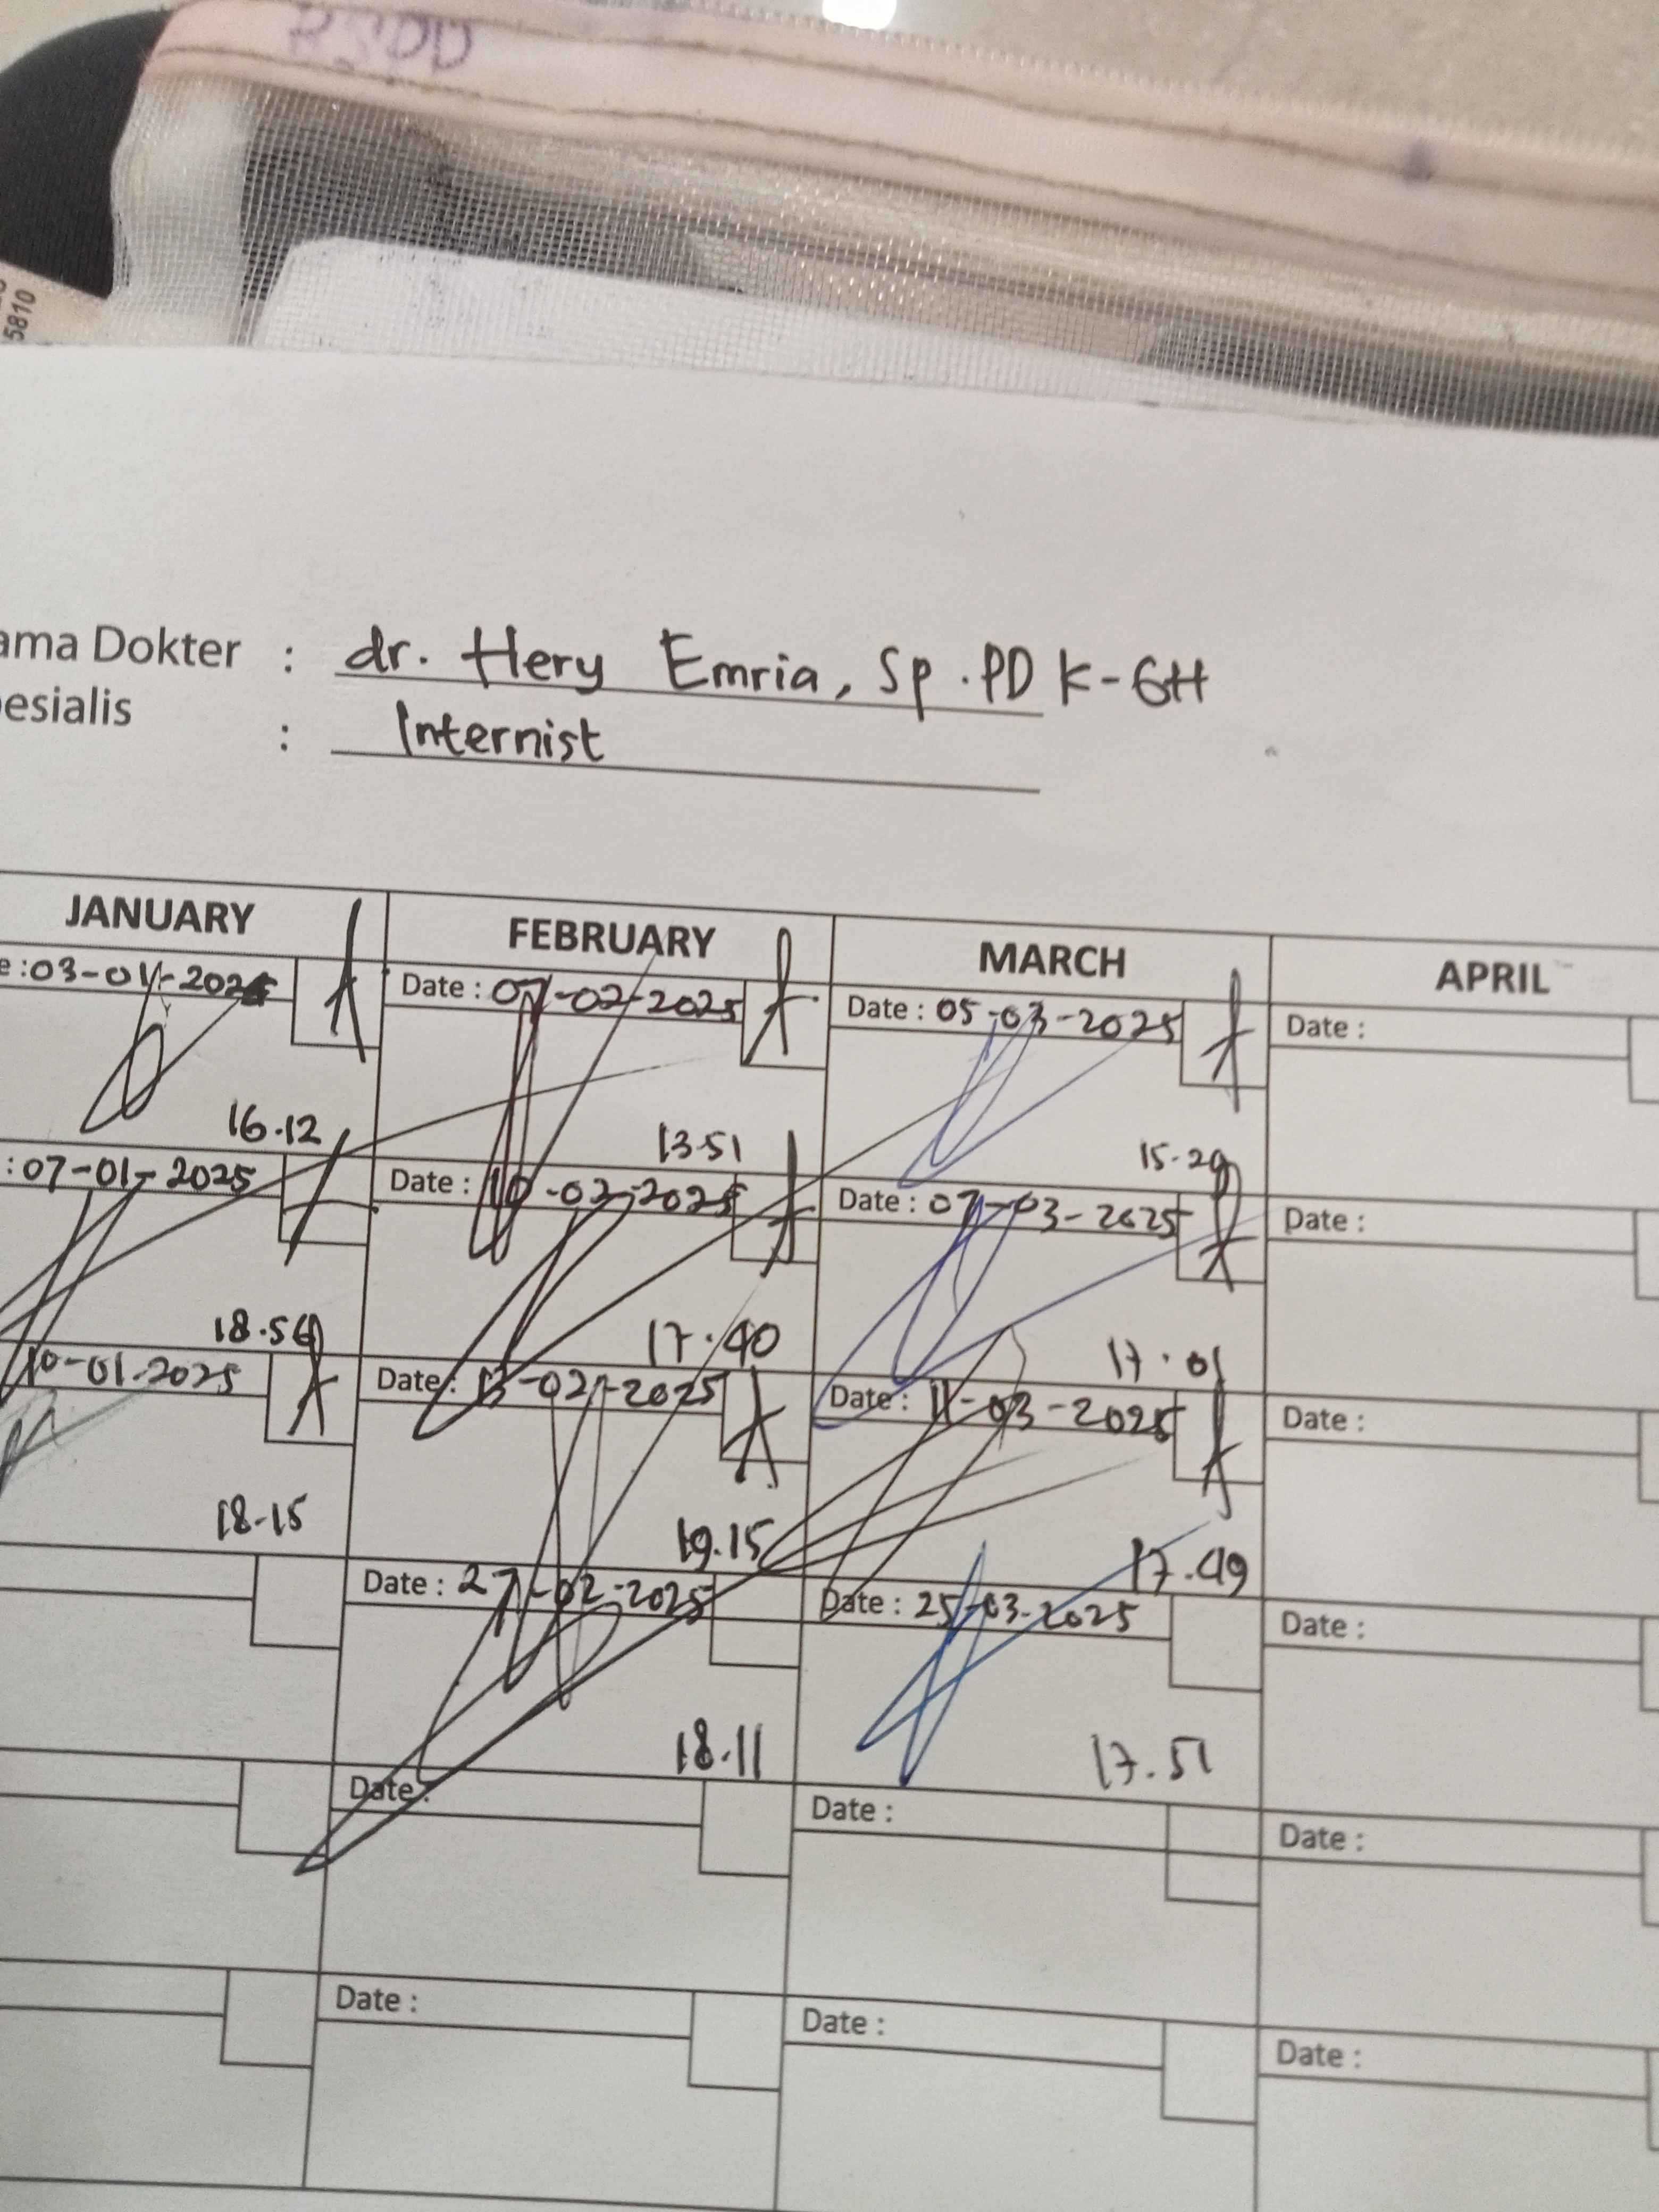 5810
ama Dokter : dr. Hery Emria, Sp.PD K-GH
esialis : Internist
JANUARY FEBRUARY MARCH APRIL
e :03-01-2025 Date : 07-02-2025 Date : 05-03-2025 Date :
16.12 13.51 15.29
:07-01-2025 Date : 10-02-2025 Date : 07-03-2025 Date :
18.56 17.40 17.01
10-01-2025 Date : 13-02-2025 Date : 11-03-2025 Date :
18-15 19.15 17.49
Date : 27-02-2025 Date : 25-03-2025 Date :
18.11 17.51
Date : Date : Date :
Date : Date : Date :